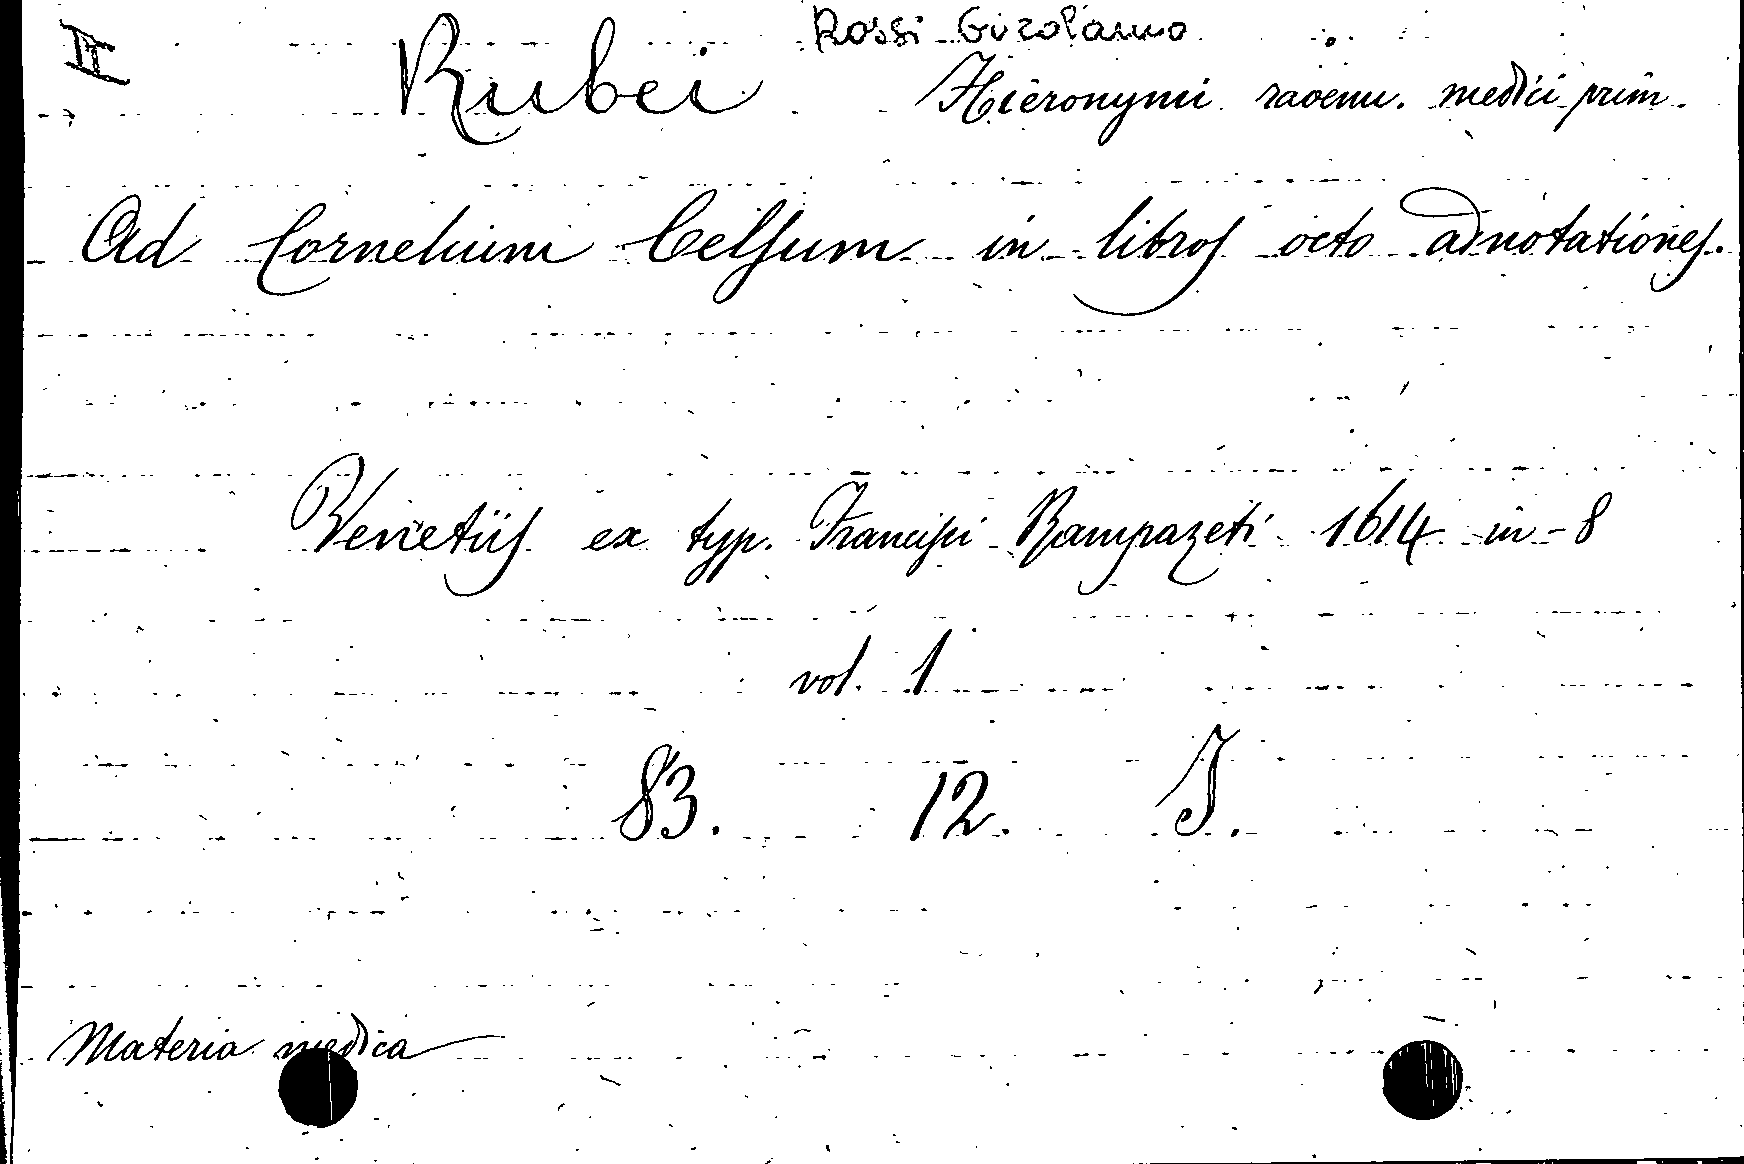 II
Rossi Girolamo
Rubei Hieronymi ravenn. medici prim.
Ad Cornelium Celsum in libros octo adnotationes.
Venetiis ex typ. Francisci Rampazeti 1614 in-8
vol. 1
83. 12. I.
Materia medica